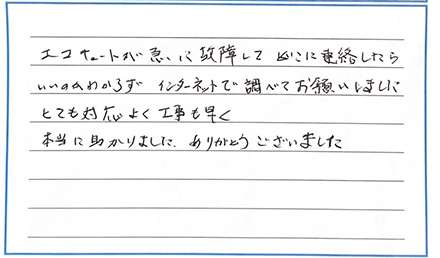 エコキュートが急に故障して どこに連絡したら
いいのかわからず インターネットで調べてお願いしました
とても対応よく工事も早く
本当に助かりました. ありがとうございました